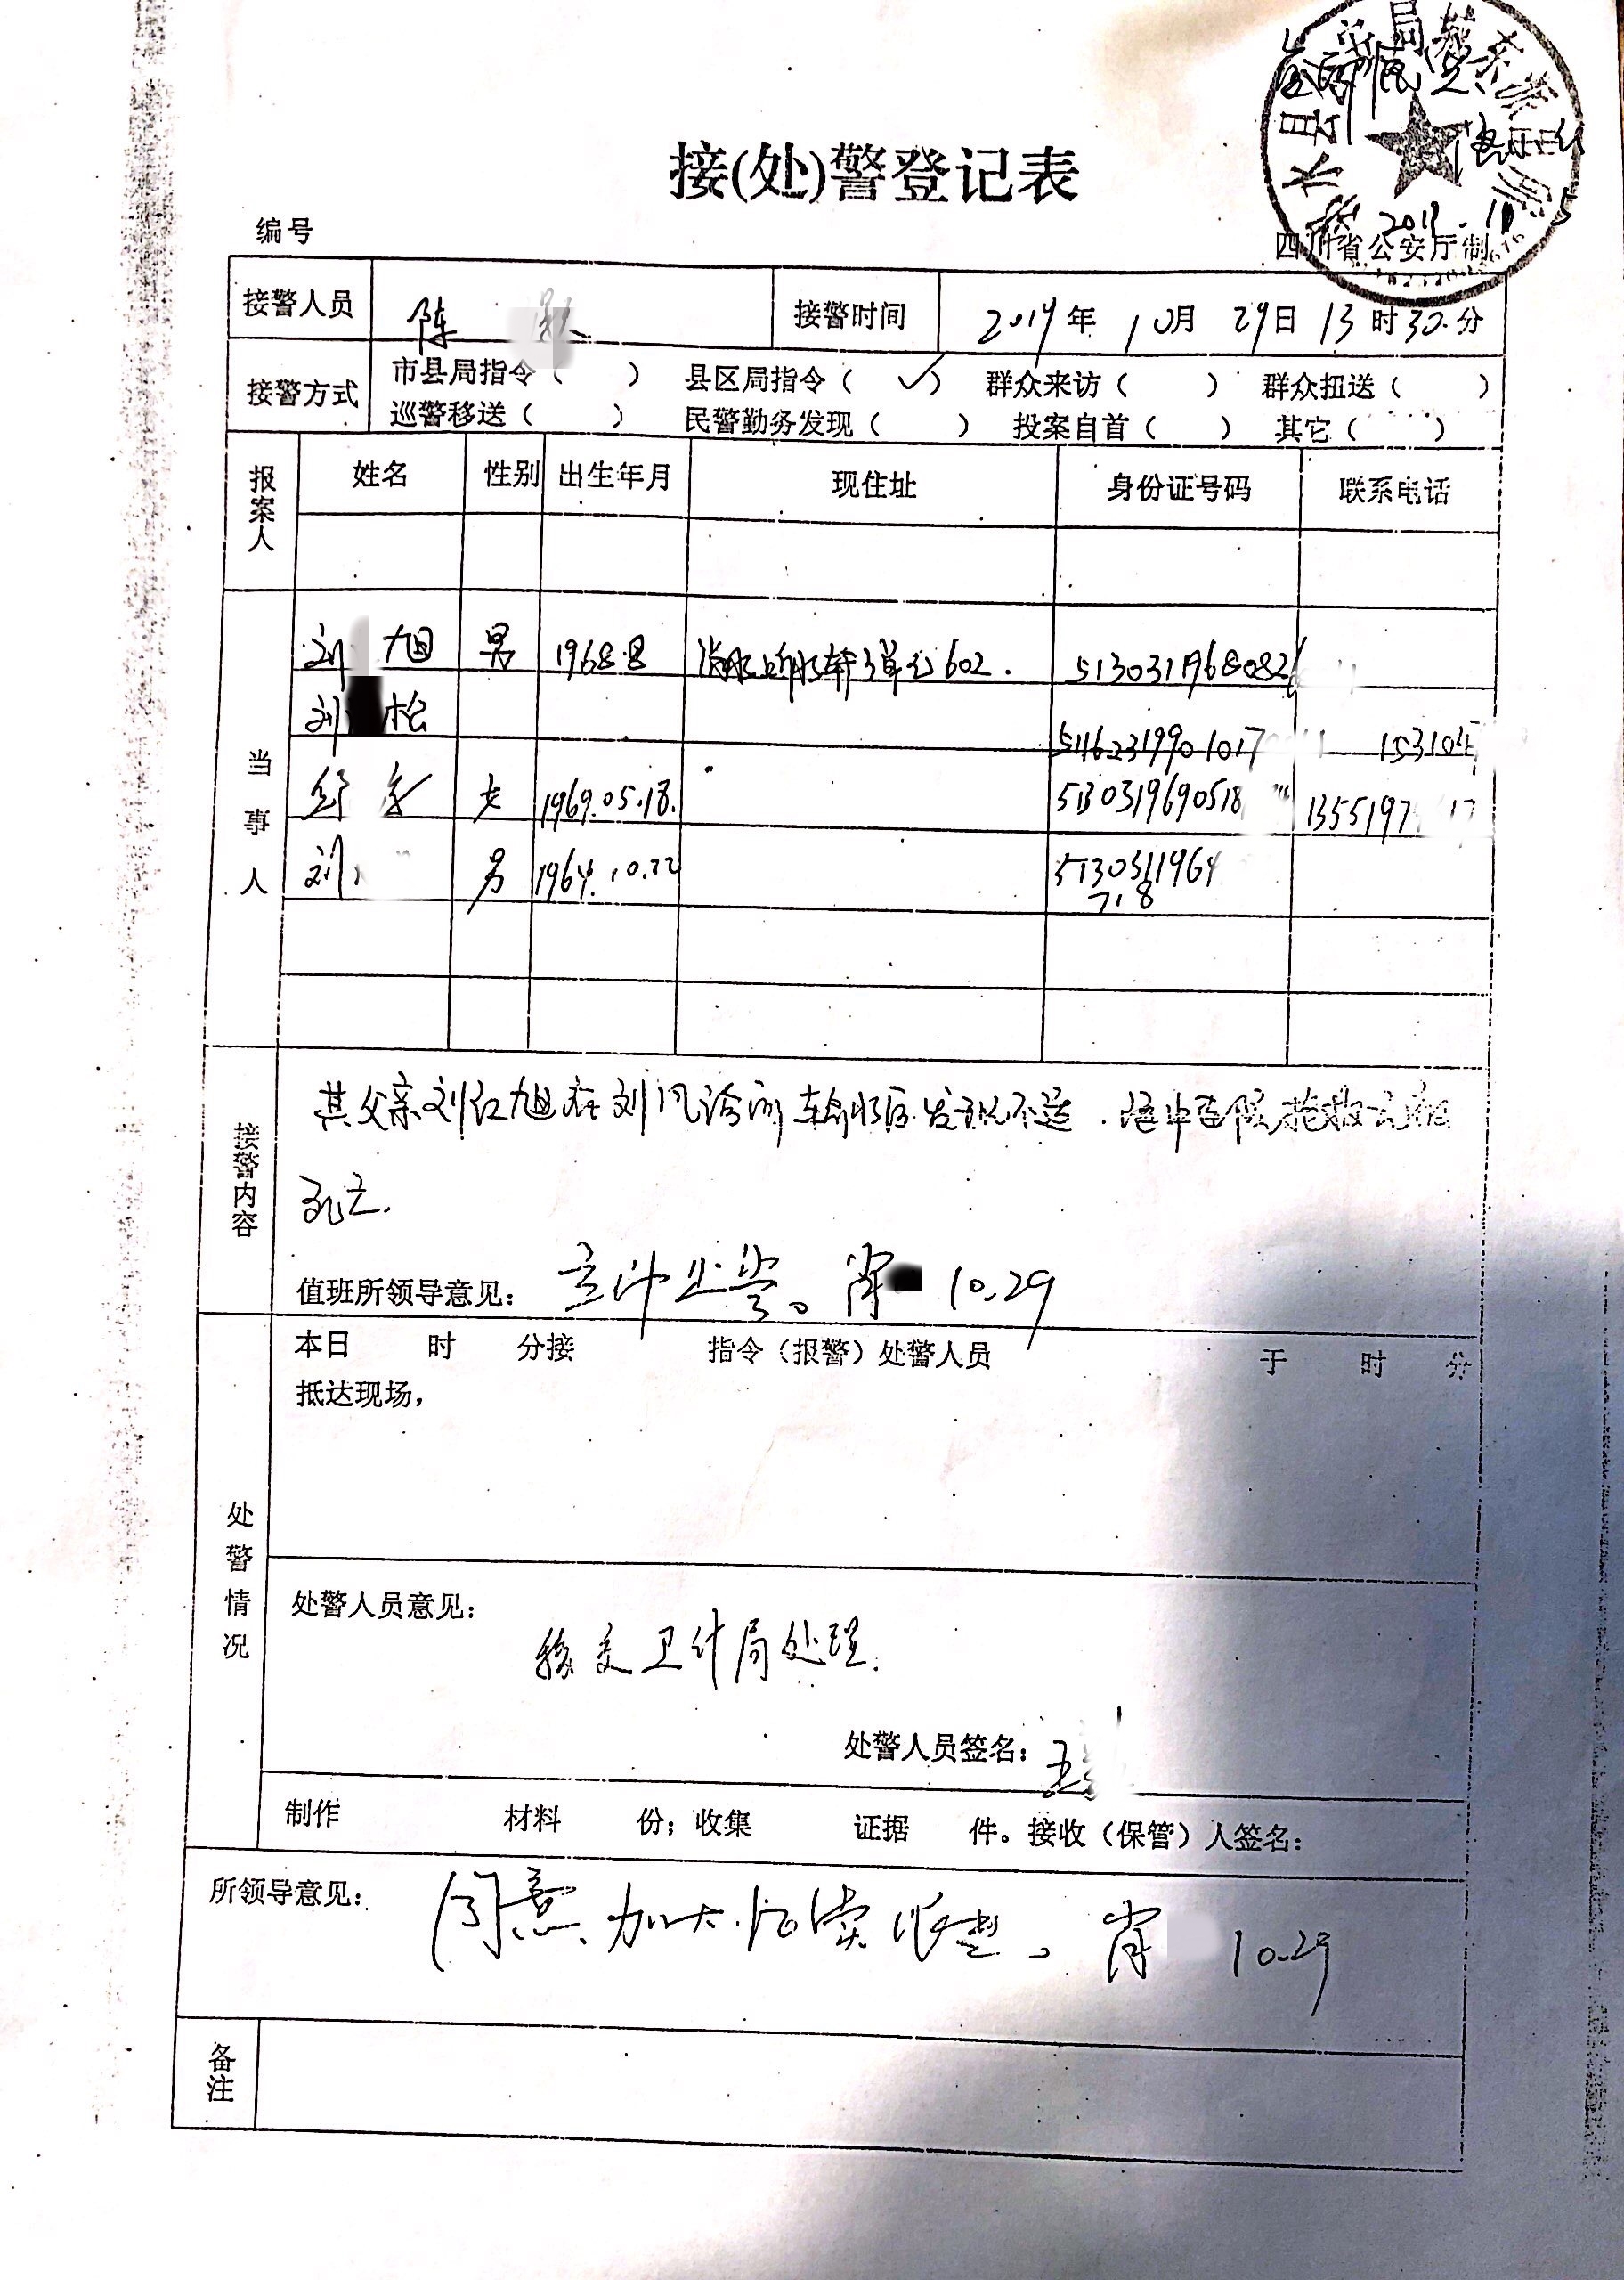 接(处)警登记表
编号
四川省公安厅制
接警人员 陈 接警时间 2019年10月29日13时30分
接警方式 市县局指令（ ） 县区局指令（✓） 群众来访（ ） 群众扭送（ ）
巡警移送（ ） 民警勤务发现（ ） 投案自首（ ） 其它（ ）
报案人 姓名 性别 出生年月 现住址 身份证号码 联系电话
当事人
刘 旭 男 1968.8 3单元602. 5130311968082
刘 松 51162319901017 15310
女 1969.05.18. 5130319690518 1355197 17
刘 男 1964.10.22 5130311964
718
接警内容
其父亲刘红旭在刘风诊所输液后发现不适.
死亡.
值班所领导意见： 肖 10.29
处警情况
本日 时 分接 指令（报警）处警人员 于 时 分
抵达现场，
处警人员意见：
移交卫计局处理.
处警人员签名： 王
制作 材料 份；收集 证据 件。接收（保管）人签名：
所领导意见： 同意 加大 肖 10.29
备注